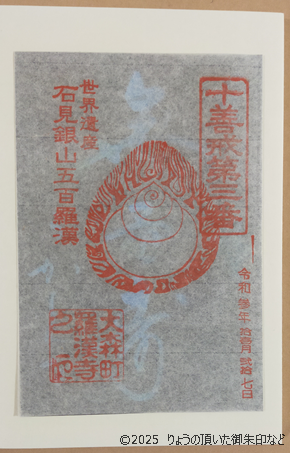 十善戒第三番
世界遺産
石見銀山五百羅漢
令和参年拾壱月弐拾七日
大森町
羅漢寺
©2025 りょうの頂いた御朱印など